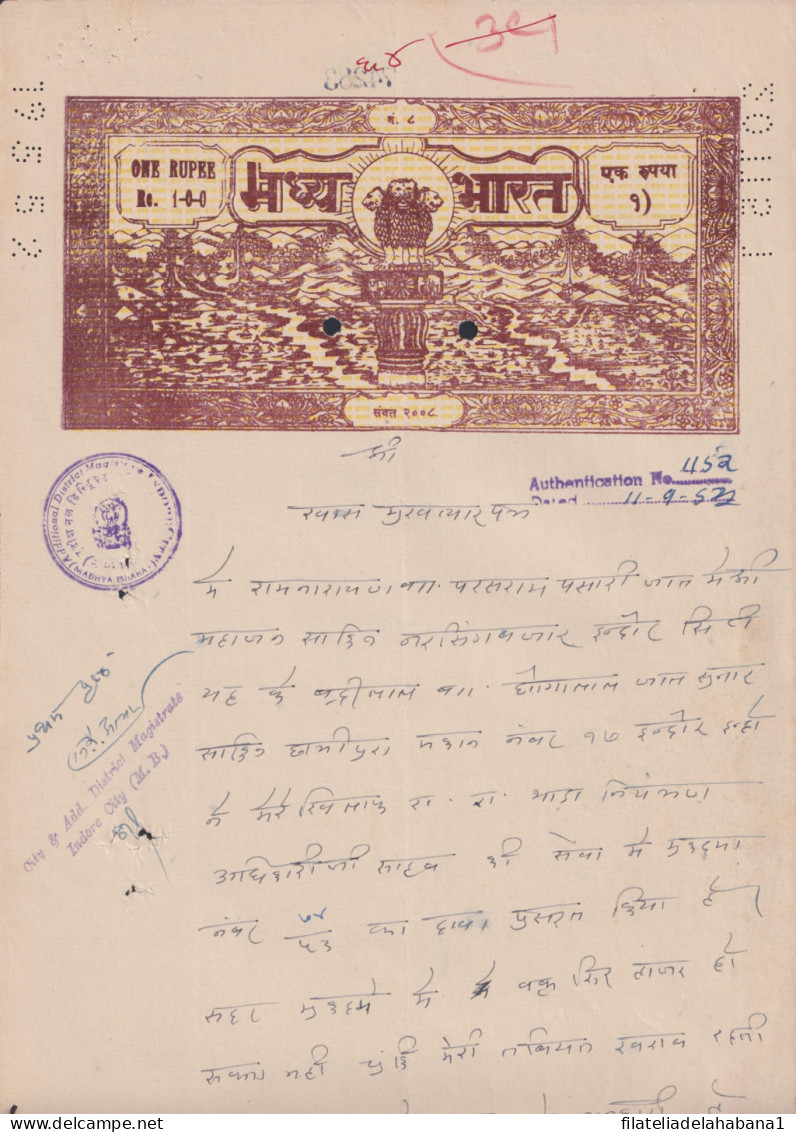 ३९
नं. ८
ONE RUPEE
Re. 1-0-0
मध्य भारत
एक रुपया
१)
संवत २००८
श्री
Authentification No. 452
Dated 11-9-52
Additional District Magistrate
(MADHYA BHARAT)
खास मुखत्यार पत्र
मे रामनारायण वा. परसराम पसारी जात मेश्री
महाजन साकिन नरसिंगबजार इन्दोर सिटी
यह के बद्रीलाल वा. घोगालाल जात सुनार
साकिन छीपीपुरा मकान नंबर १७ इन्दोर इन्हो
ने मेरे खिलाफ रा. रा. भाडा नियंत्रण
अधिकारीजी साहब की सेवा मे मुकदमा
नंबर ७४/५३ का दावा प्रस्तुत किया है।
सदर मुकदमे मे मे वक्त सिर हाजर हो
सकता नही चुंकि मेरी तबियत खराब रहती
City & Add. District Magistrate
Indore City (M. B.)
www.filateliadelahabana1